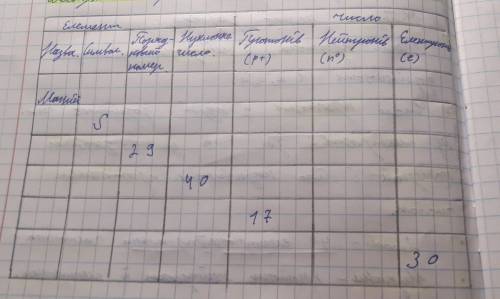 Елемент
Число
Назва. Символ. Поряд-
ковий
номер. Нуклонне
число. Протонів
(p+) Нейтронів
(n°) Електронів
(e)
Магній
S
29
40
17
30